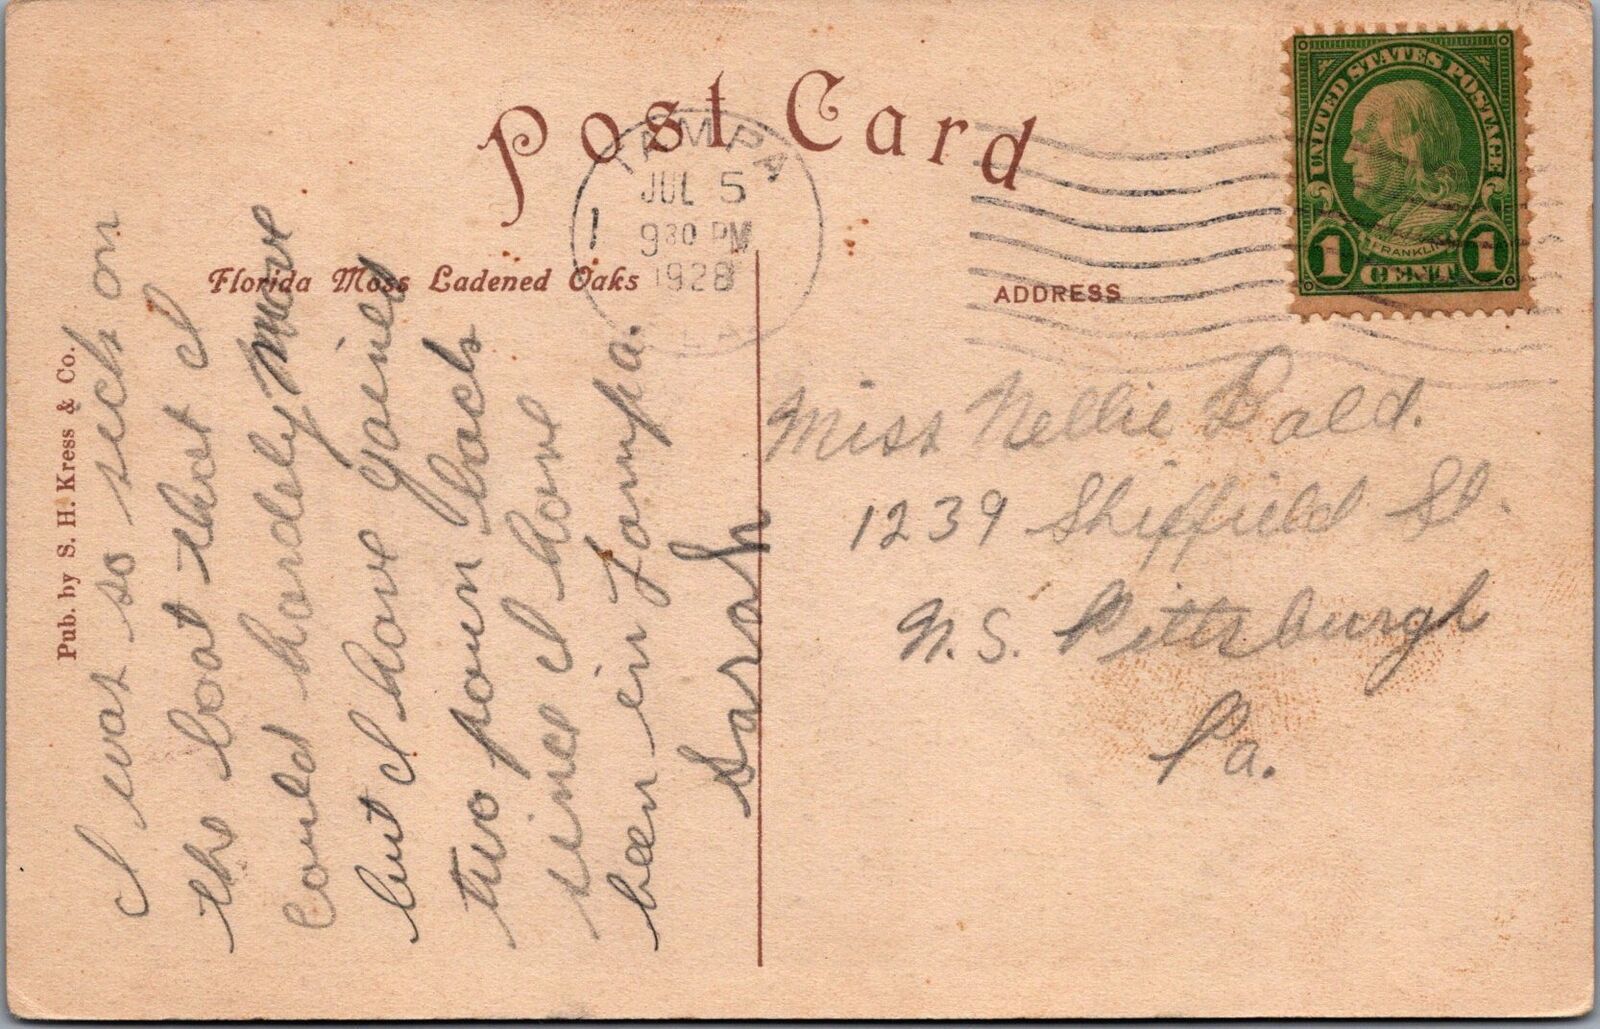 Post Card
TAMPA
JUL 5
9 30 PM
1928
FLA
1
UNITED STATES POSTAGE
FRANKLIN
1 CENT 1
Florida Moss Ladened Oaks
ADDRESS
Pub. by S. H. Kress & Co.
I was so sick on
the boat that I
could hardely move
but I have gained
two poun back
since I have
been in Tampa.
Sarah
Miss Nellie Dald.
1239 Shiffield St.
N. S. Pittsburgh
Pa.